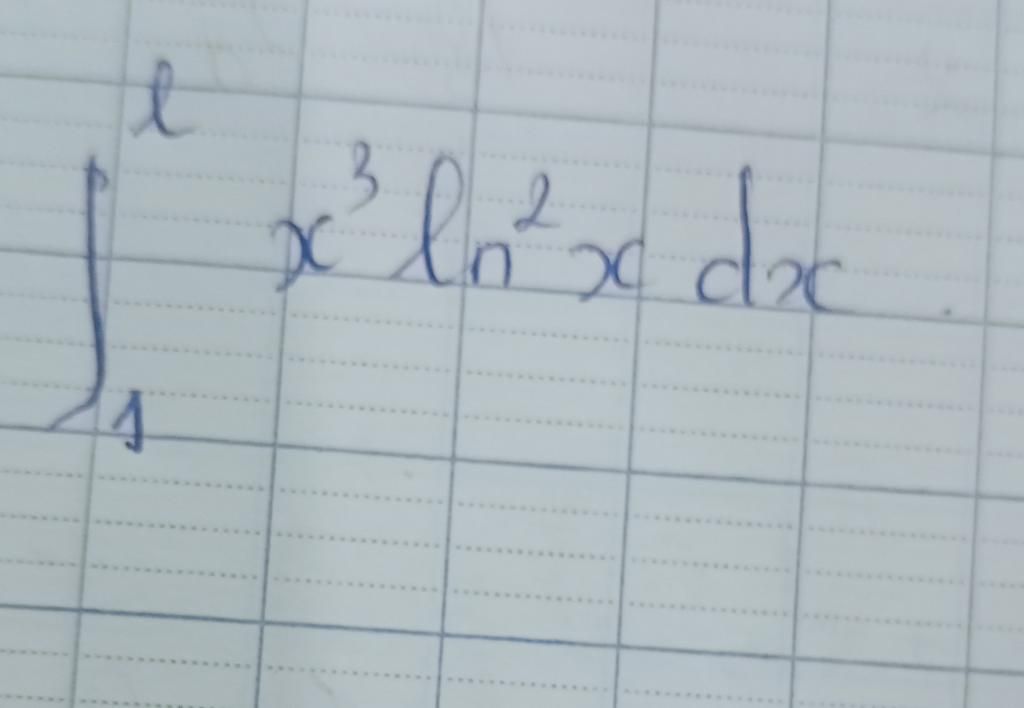 ∫₁ᵉ x³ ln² x dx.